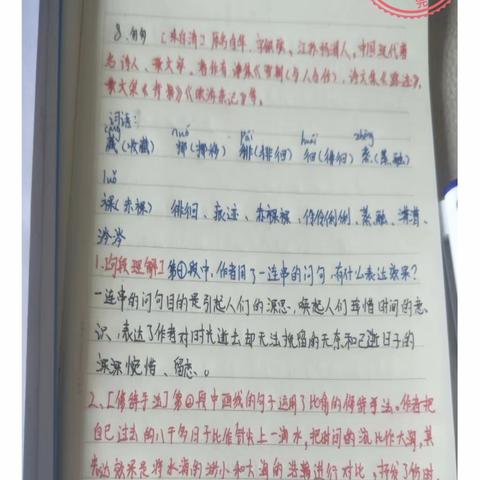 8. 匆匆 [朱自清] 原名自华, 字佩弦, 江苏扬州人, 中国现代著
名诗人、散文家。
散文集《背影》《欧游杂记》等。
词语:
cáng nuó pái huái zhēng
藏(收藏) 挪(挪移) 徘(徘徊) 徊(徘徊) 蒸(蒸融)
luǒ
裸(赤裸) 徘徊、痕迹、赤裸裸、伶伶俐俐、蒸融、潸潸、
涔涔
1.[句段理解]第①段中,作者用了一连串的问句,有什么表达效果?
一连串的问句目的是引起人们的深思,唤起人们珍惜时间的意
识,表达了作者对时光逝去却无法挽留的无奈和已逝日子的
深深惋惜、留恋。
2、[修辞手法]第②段中画线的句子运用了比喻的修辞手法。作者把
自己过去的八千多日子比作针尖上一滴水,把时间的流比作大海,其
表达效果是将水滴的渺小和大海的浩瀚进行对比,抒发了